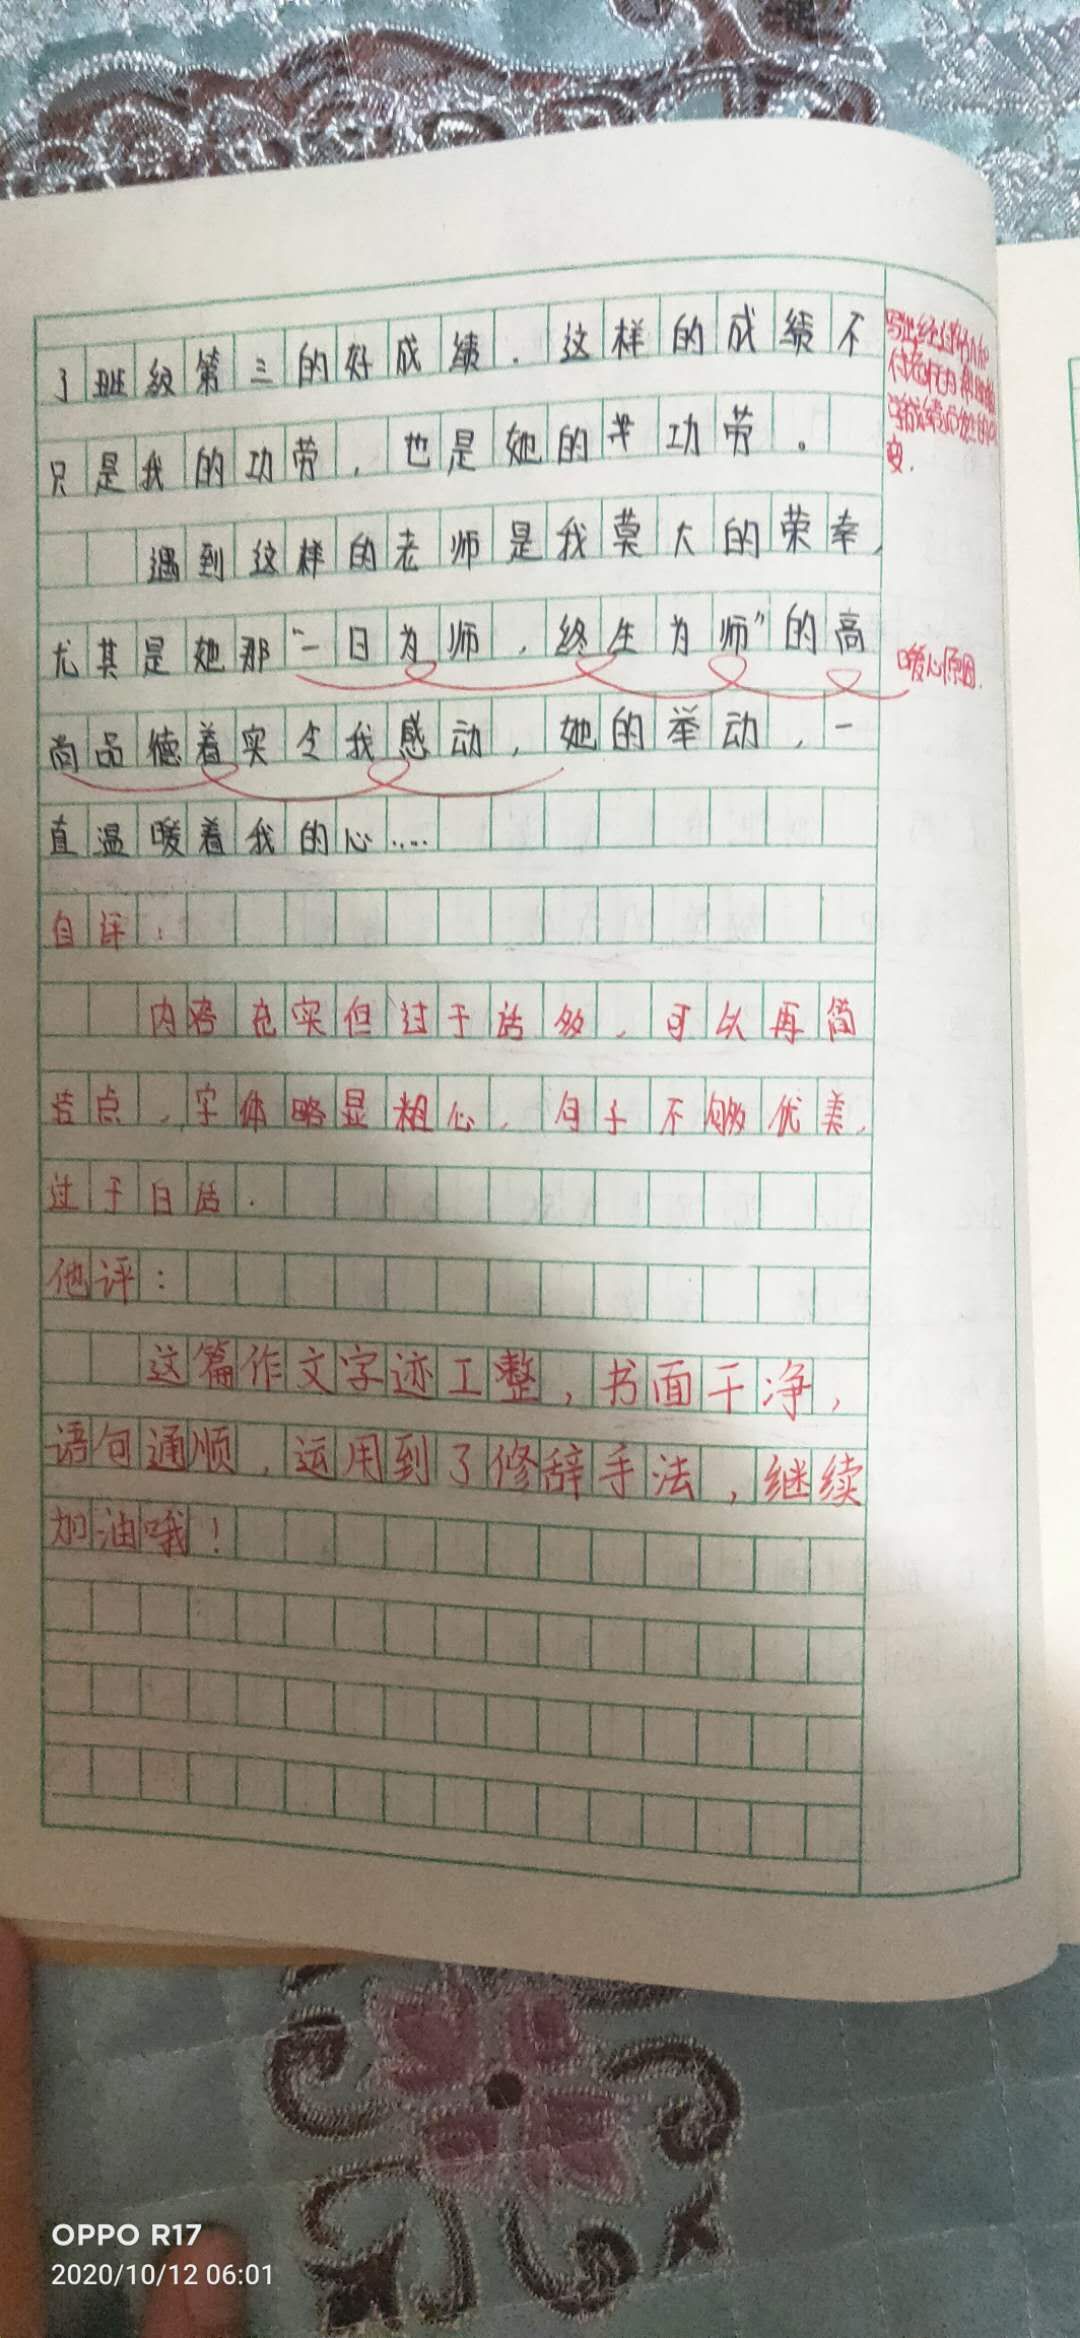 了班级第三的好成绩.这样的成绩不
只是我的功劳，也是她的半功劳。
遇到这样的老师是我莫大的荣幸，
尤其是她那“一日为师，终生为师”的高
尚品德着实令我感动，她的举动，一
直温暖着我的心……
暖心原因.
自评：
内容充实但过于话多，可以再简
洁点，字体略显粗心，句子不够优美，
过于白话.
他评：
这篇作文字迹工整，书面干净，
语句通顺，运用到了修辞手法，继续
加油哦！
OPPO R17
2020/10/12 06:01